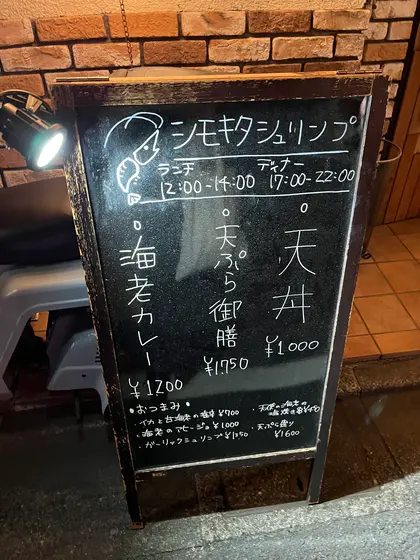 シモキタシュリンプ
ランチ ディナー
12:00-14:00 17:00-22:00
・天丼
¥1000
・天ぷら御膳
¥1750
・海老カレー
¥1200
・おつまみ・
・イカと甘海老の ¥700
・海老のアヒージョ ¥1000
・ガーリックシュリンプ ¥1350
・天使の海老の
・天ぷら盛り
¥1600